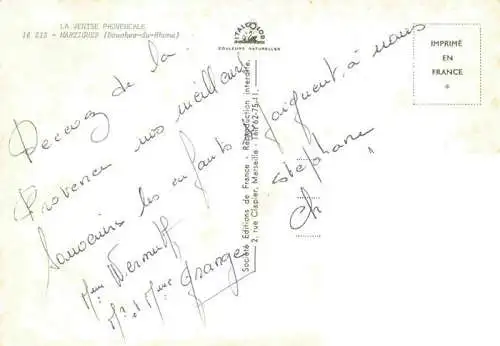 LA VENISE PROVENCALE
16 013 - MARTIGUES (Bouches-du-Rhône)
ITALCOLOR
COULEURS NATURELLES
IMPRIMÉ
EN
FRANCE
*
Recevez de la
Provence nos meilleurs
Souvenirs les enfants joignent à nous
Stéphane
Ch
Mme Vermult
Mr et Mme Grange
Société Editions de France - Reproduction interdite.
2, rue Clapier, Marseille - Tél 62-75-11.